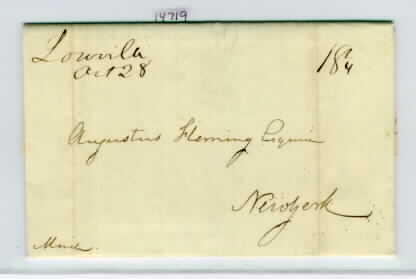 14719
Lowvila 18¾
Oct 28
Augustus Fleming Esquire
Newyork